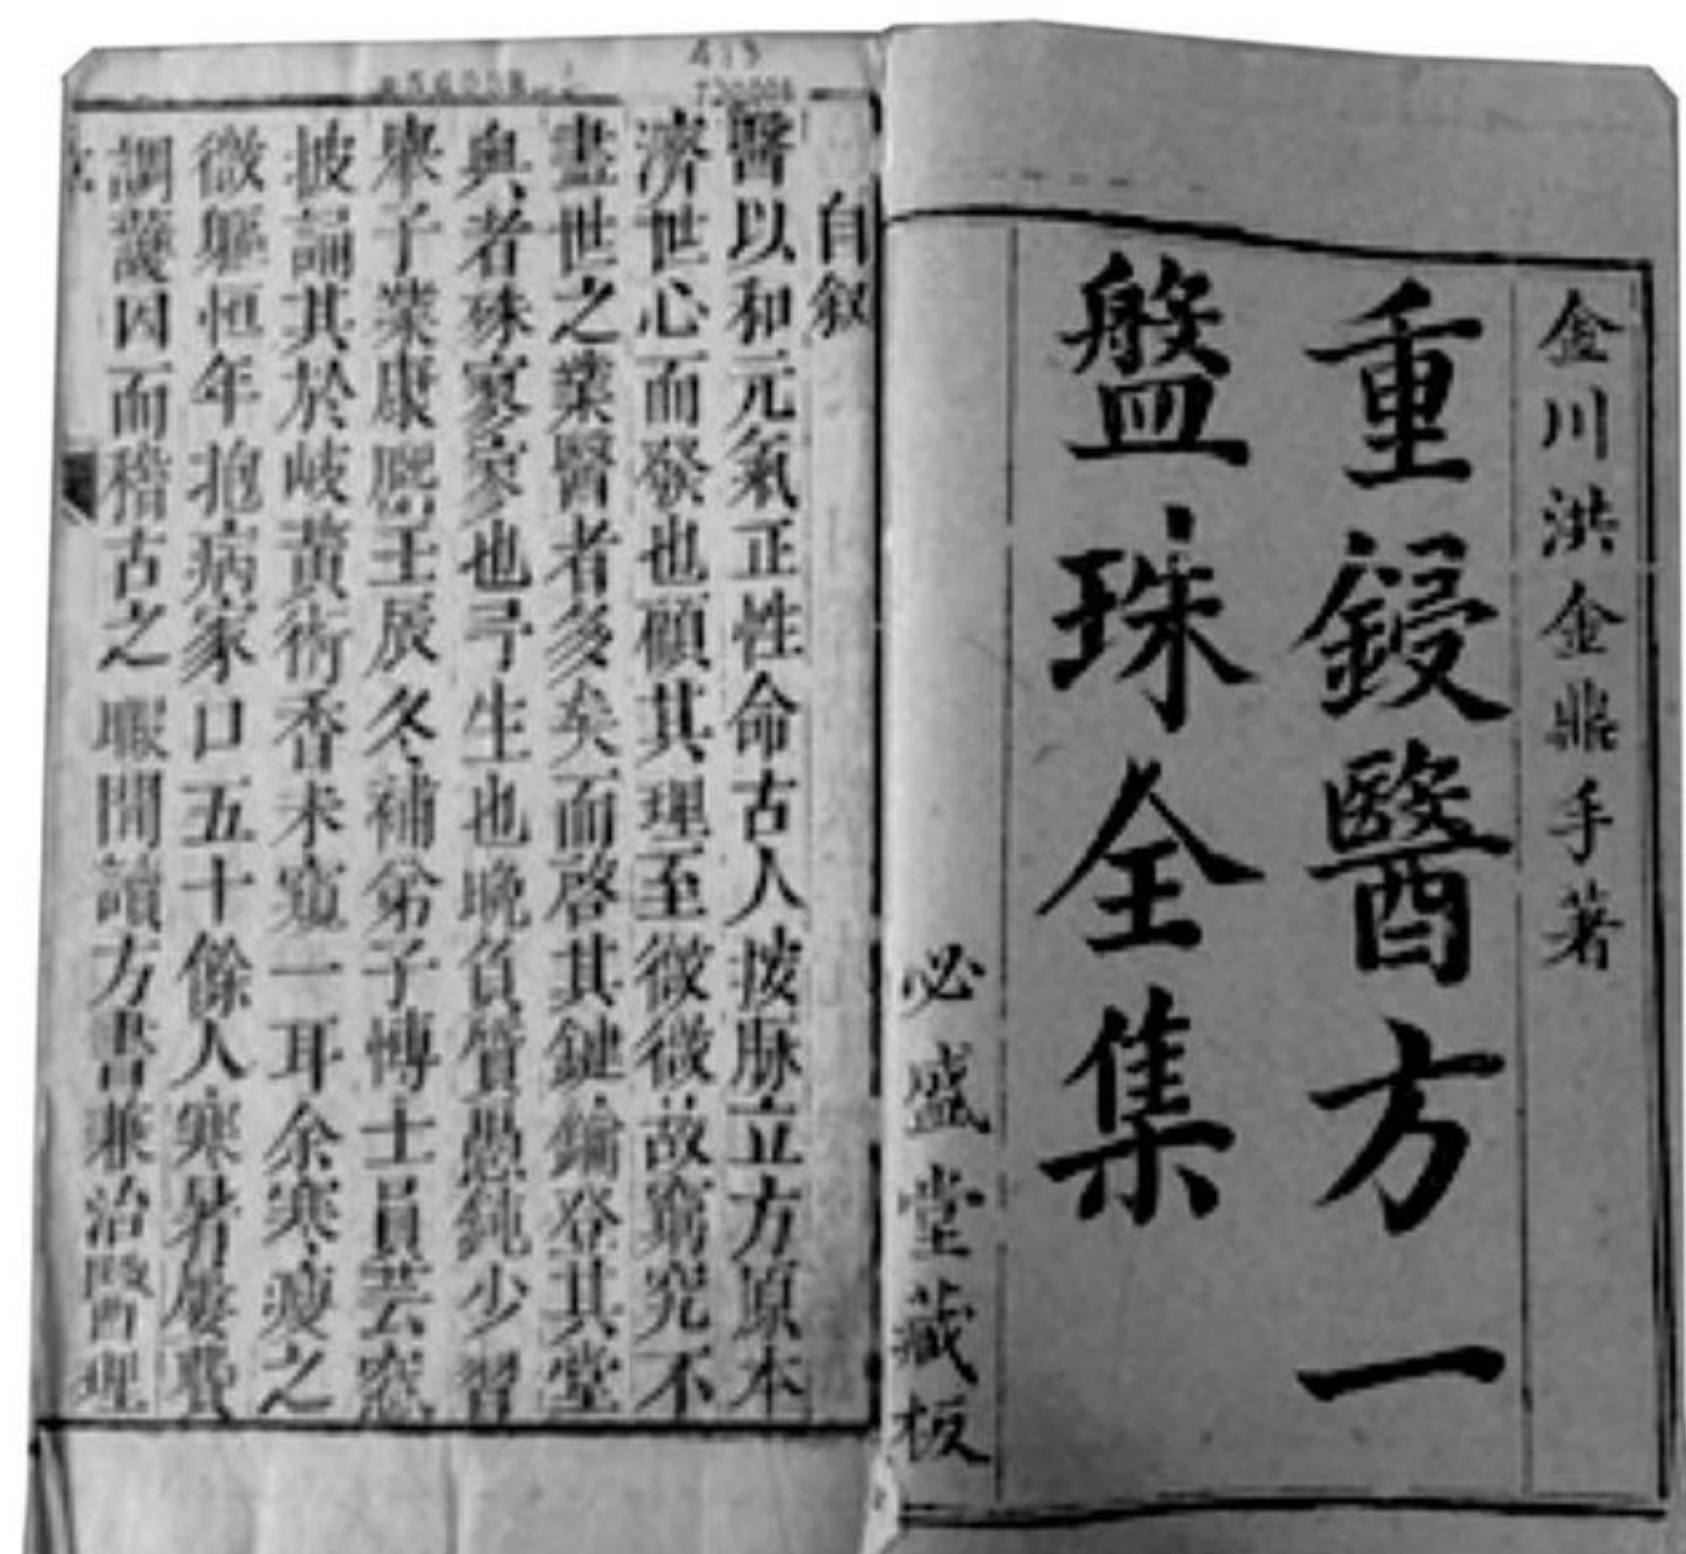 金川洪金鼎手著
重鋟醫方一
盤珠全集
必盛堂藏板
自叙
醫以和元氣正性命古人按脉立方原本
濟世心而發也顧其理至微微故窮究不
盡世之業醫者多矣而啓其鍵鑰登其堂
奧者殊寥寥也丂生也晚負質愚鈍少習
舉子業康熙壬辰冬補弟子博士員芸窓
披誦其於岐黃術杳未窺一耳余寒瘦之
微軀恒年抱病家口五十餘人寒暑屢費
調護因而稽古之暇間讀方書兼治醫理